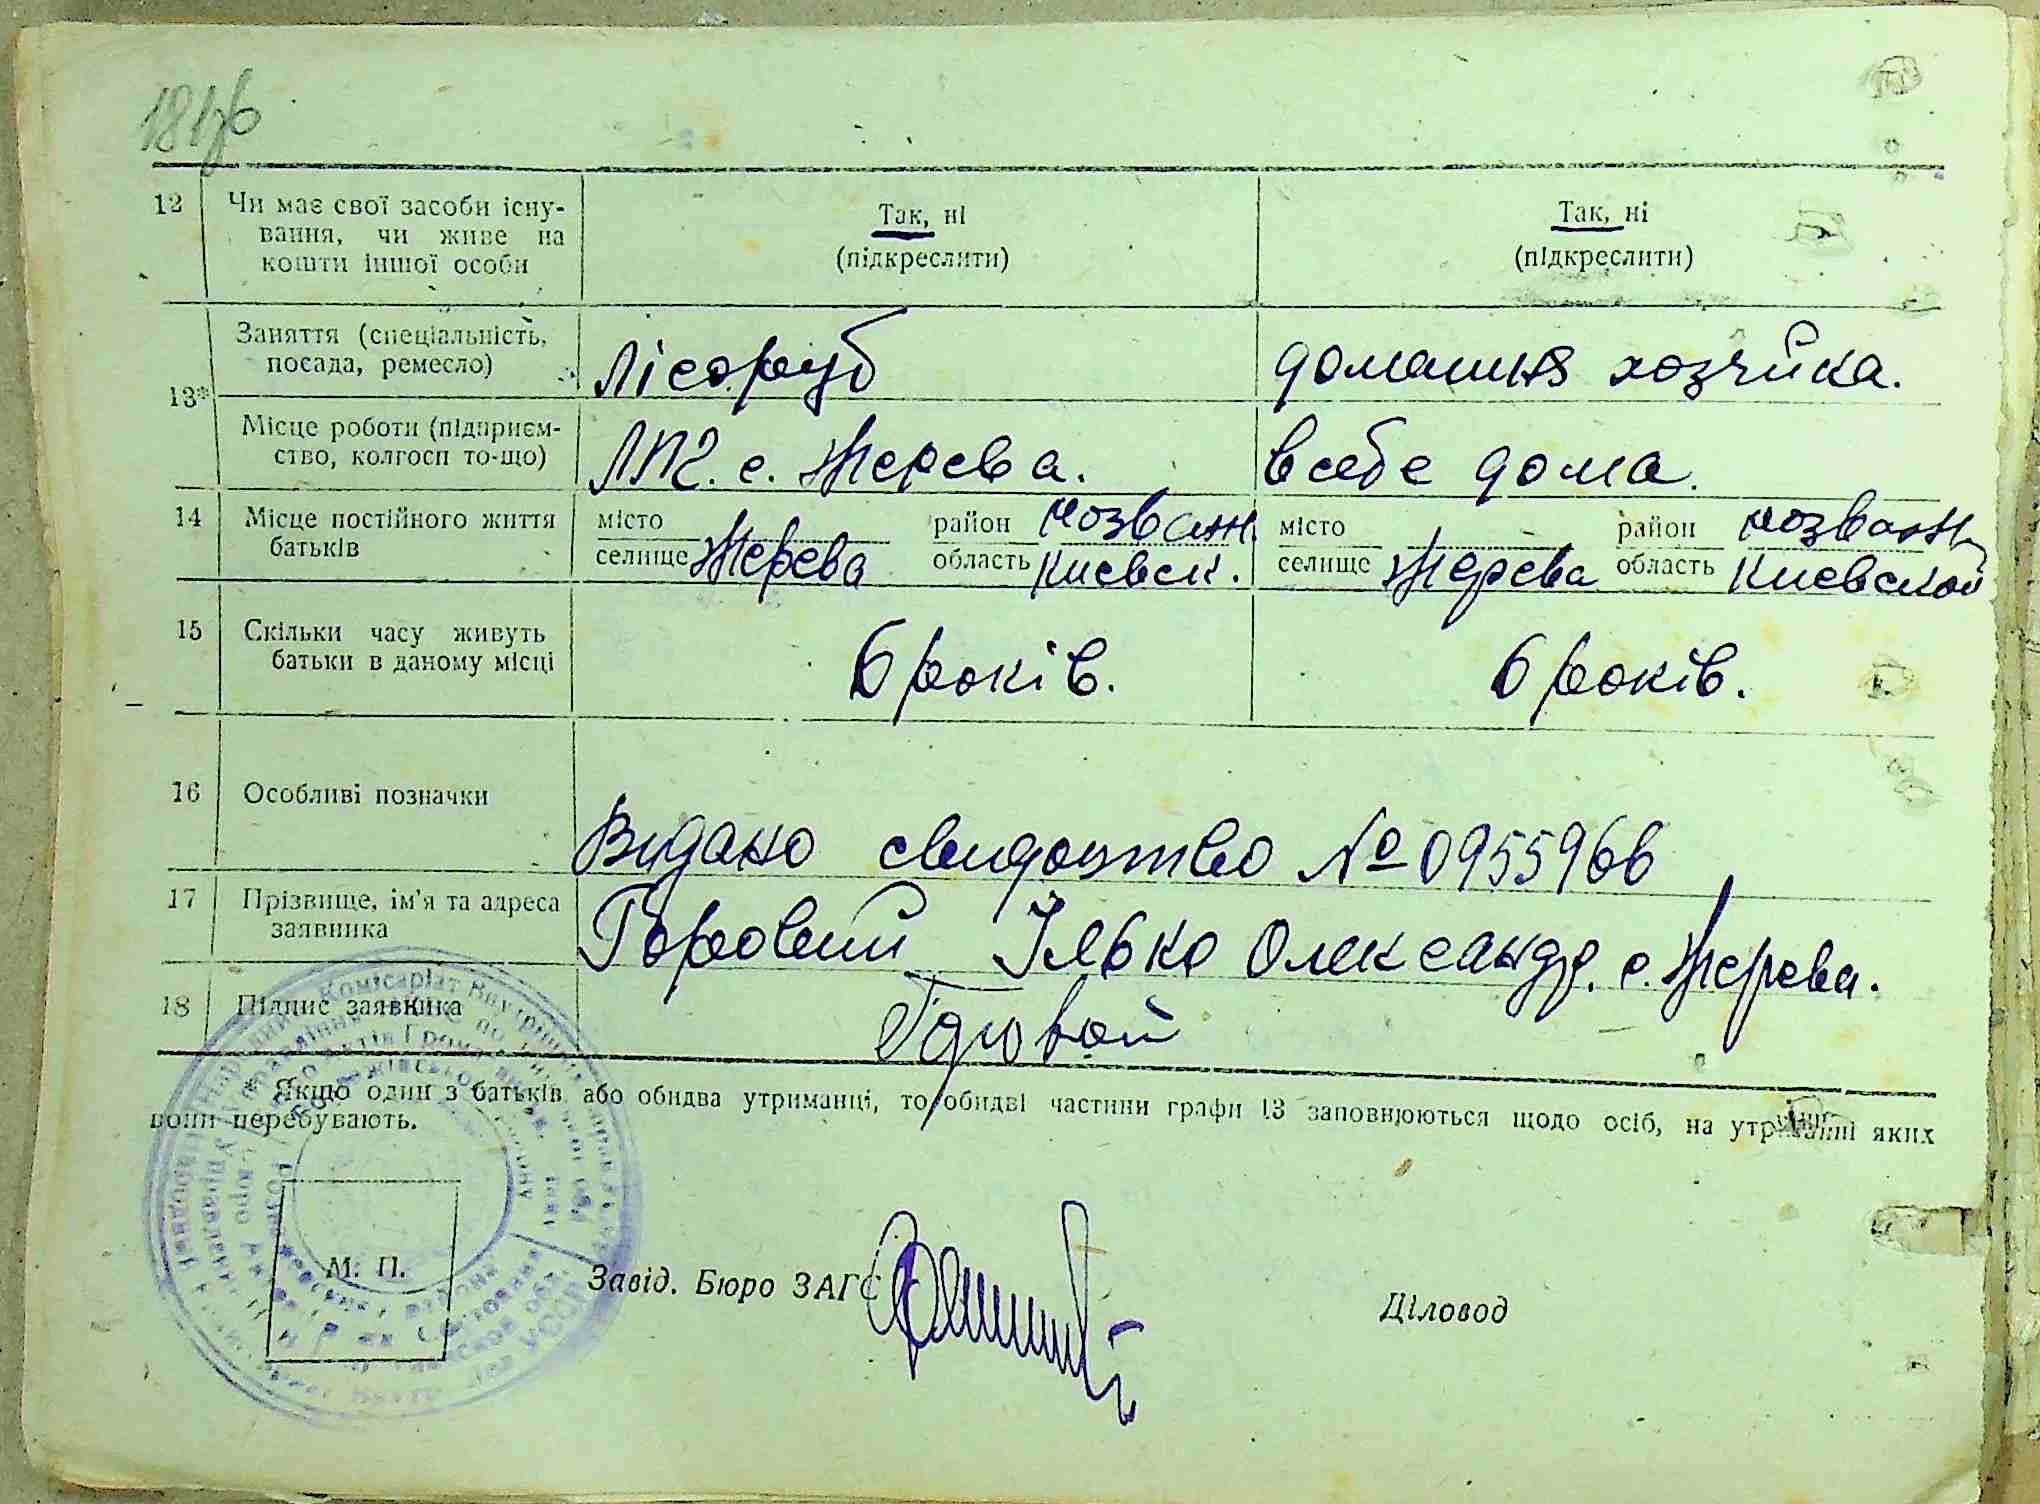 12 Чи має свої засоби існу-
вання, чи живе на
кошти іншої особи
Так, ні
(підкреслити)
Так, ні
(підкреслити)
13* Заняття (спеціальність,
посада, ремесло)
Лісоруб
домашня хозяйка.
Місце роботи (підприєм-
ство, колгосп то-що)
с. Жерева.
в себе дома.
14 Місце постійного життя
батьків
місто район Розваж.
селище Жерева область Киевск.
місто район Розваж
селище Жерева область Киевской
15 Скільки часу живуть
батьки в даному місці
6 років.
6 років.
16 Особливі позначки
Видано свидоцтво № 0955966
17 Прізвище, ім'я та адреса
заявника
Горовий Ілько Олександр. с. Жерева.
18 Підпис заявника
Горовой
* Якщо один з батьків або обидва утриманці, то обидві частини графи 13 заповнюються щодо осіб, на утриманні яких
вони перебувають.
М. П.
Завід. Бюро ЗАГС
Діловод